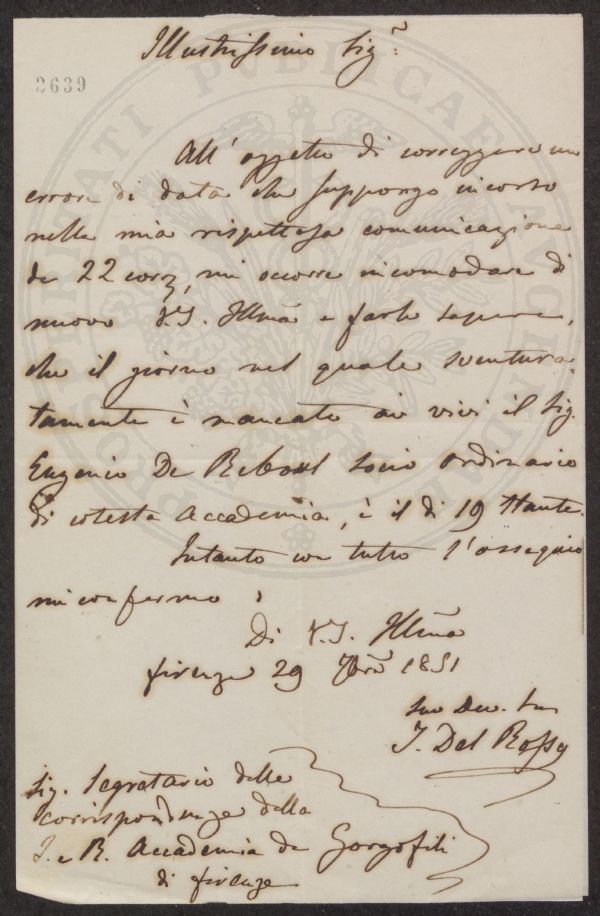 Illustrissimo Sigr.
2639
All' oggetto di correggere un
errore di data che suppongo incorso
nella mia rispettosa comunicazione
de 22 corr., mi occorre incomodare di
nuovo V.S. Illma e farle sapere,
che il giorno nel quale sventura-
tamente è mancato ai vivi il Sig.
Eugenio De Reboul socio ordinario
di cotesta Accademia, è il dì 19 stante.
Intanto con tutto l'ossequio
mi confermo,
Di V.S. Illma
Firenze 29 7bre 1851
Suo Dev. Sre
I. Del Rosso
Sig. Segretario delle
corrispondenze della
I. e R. Accademia de Georgofili
di Firenze
PROSPERITATI PUBLICAE AUGENDAE